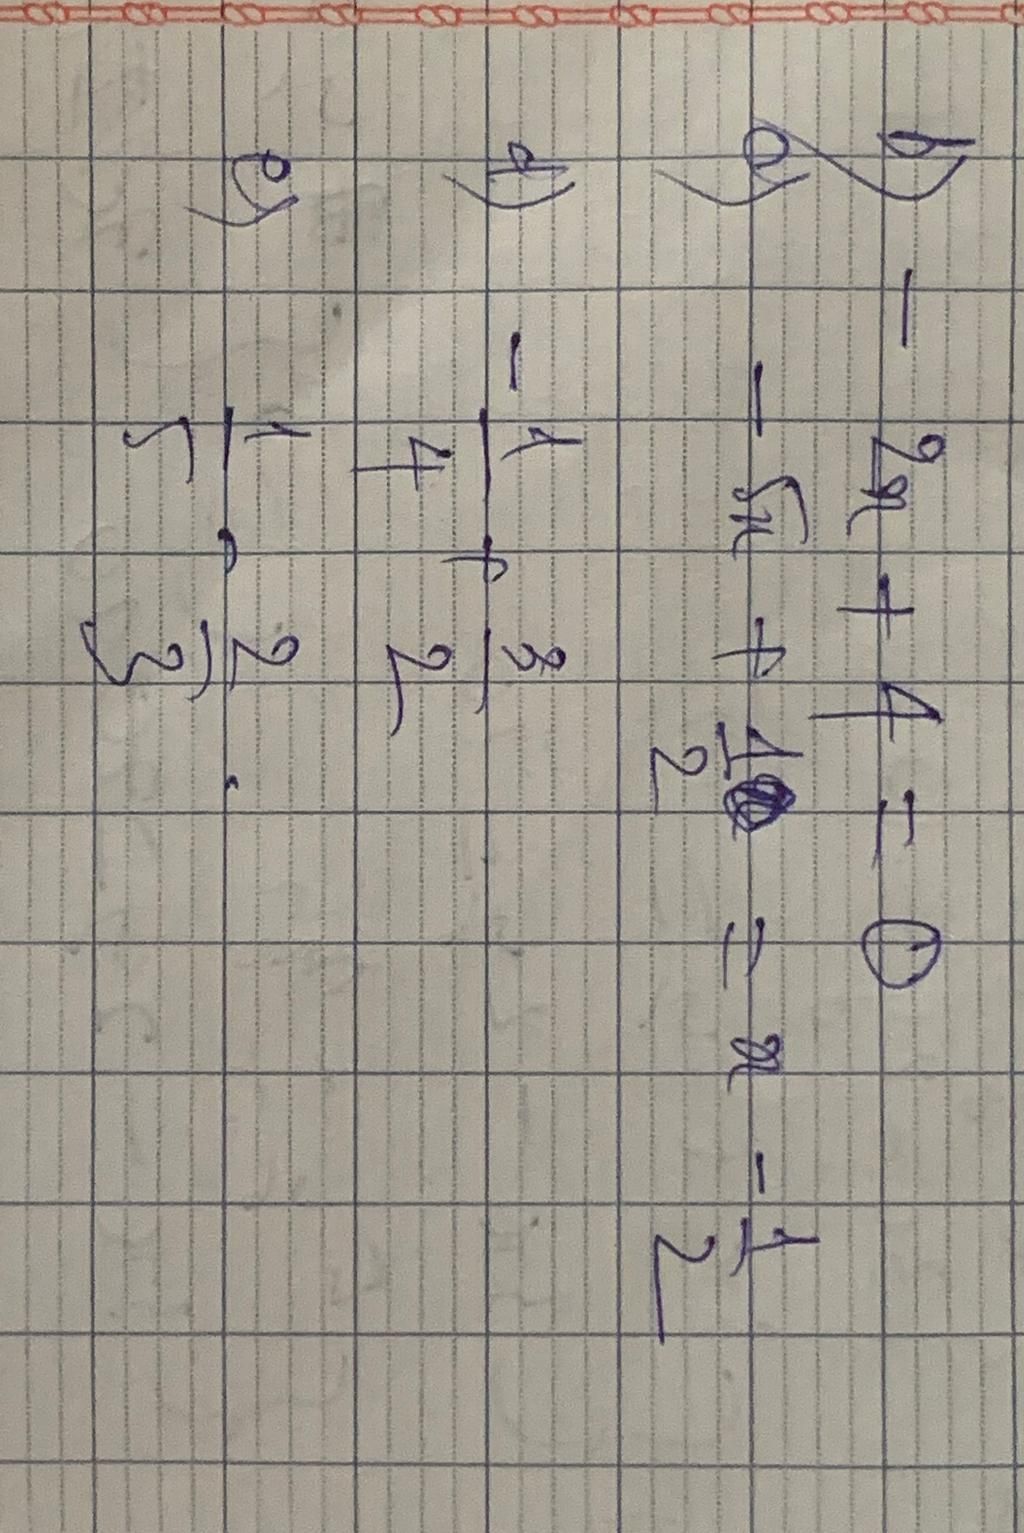 b) - 2x + 4 = 0
a) - 5x + 1/2 = x - 1/2
d) - 1/4 + 3/2
e) 1/5 · 2/3 ·